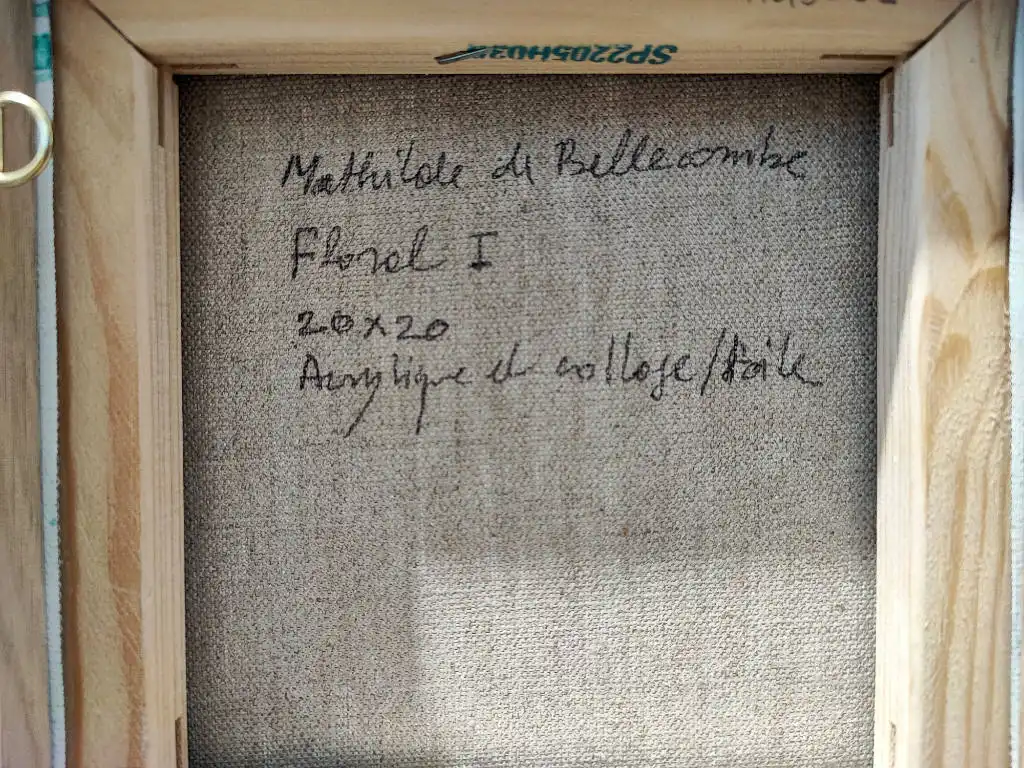 SP2205H03
Mathilde de Bellecombe
Floral I
20x20
Acrylique et collage/toile